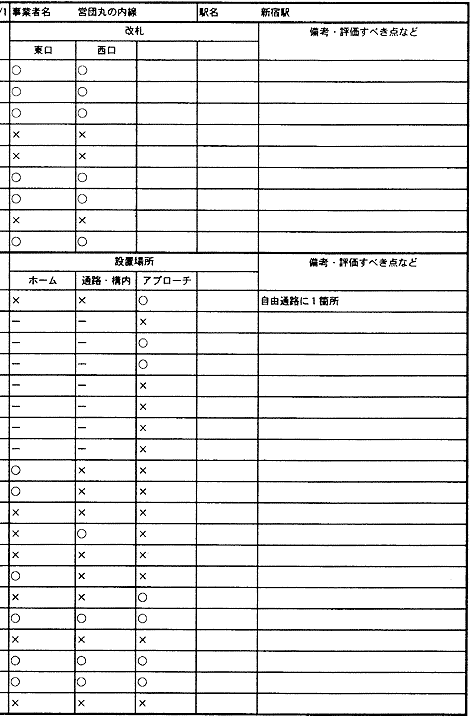 /1 事業者名 営団丸の内線 駅名 新宿駅
改札 備考・評価すべき点など
東口 西口
○ ○
○ ○
○ ○
× ×
× ×
○ ○
○ ○
× ×
○ ○
設置場所 備考・評価すべき点など
ホーム 通路・構内 アプローチ
× × ○ 自由通路に１箇所
－ － ×
－ － ○
－ － ○
－ － ×
－ － ×
－ － ×
－ － ×
○ × ×
○ × ×
× × ×
× ○ ×
× × ×
○ × ×
× × ○
○ ○ ○
× × ×
○ ○ ○
○ ○ ○
× × ×